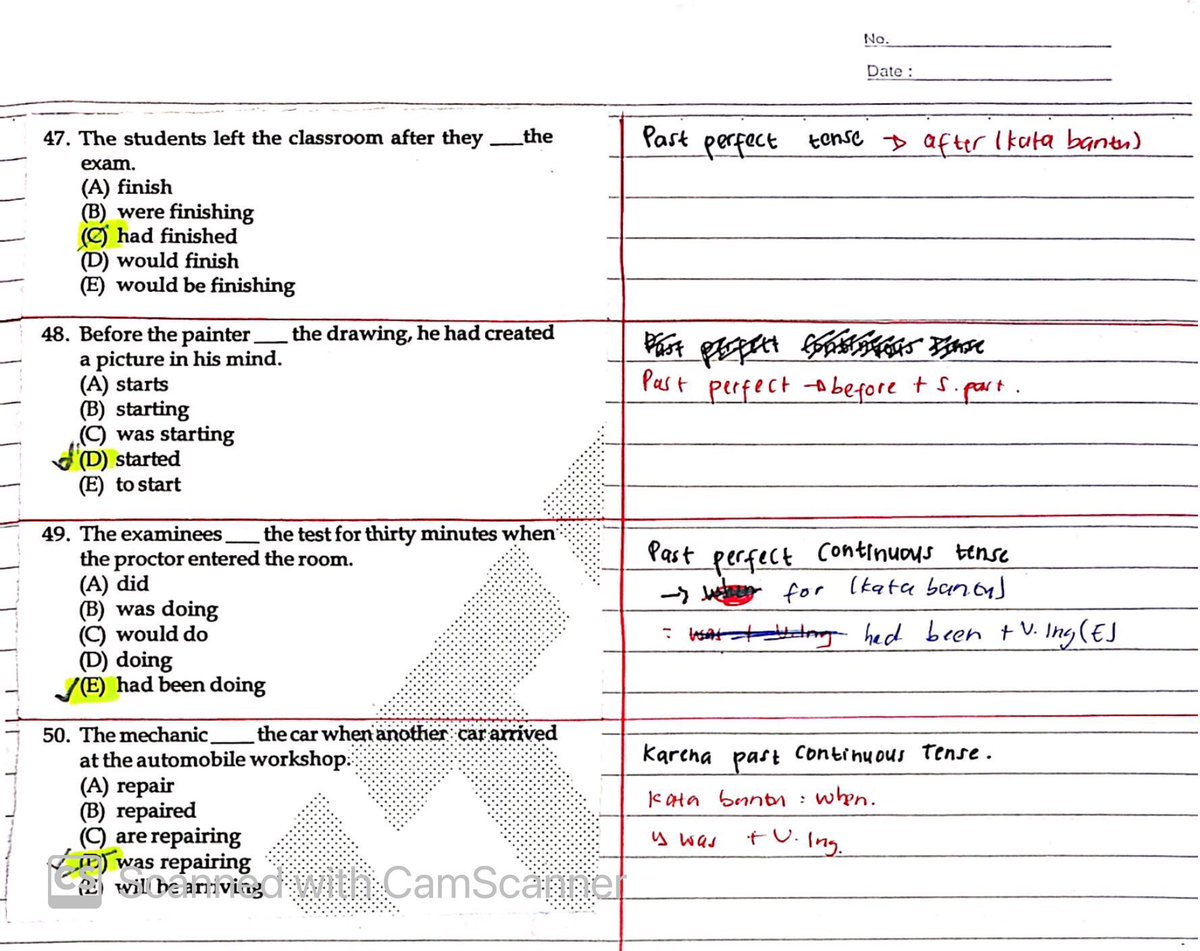 No.
Date :
47. The students left the classroom after they ___the
exam.
(A) finish
(B) were finishing
(C) had finished
(D) would finish
(E) would be finishing
Past perfect tense → after (kata bantu)
48. Before the painter ___ the drawing, he had created
a picture in his mind.
(A) starts
(B) starting
(C) was starting
(D) started
(E) to start
Past perfect continuous tense
Past perfect → before + S. past.
49. The examinees ___ the test for thirty minutes when
the proctor entered the room.
(A) did
(B) was doing
(C) would do
(D) doing
(E) had been doing
Past perfect continuous tense
→ when for (kata bantu)
= was + V.Ing had been + V. Ing (E)
50. The mechanic ____ the car when another car arrived
at the automobile workshop.
(A) repair
(B) repaired
(C) are repairing
(D) was repairing
(E) will be arriving
Karena past continuous Tense.
kata bantu : when.
↳ was + V. Ing.
CS Scanned with CamScanner